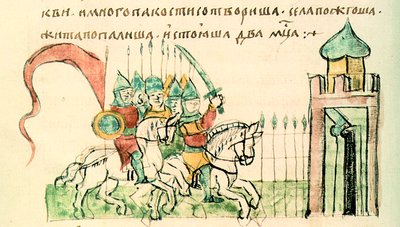 кви · имногопакостисотвориша · селапожгоша ·
житапопалиша · истоꙗша два мц҃а :+